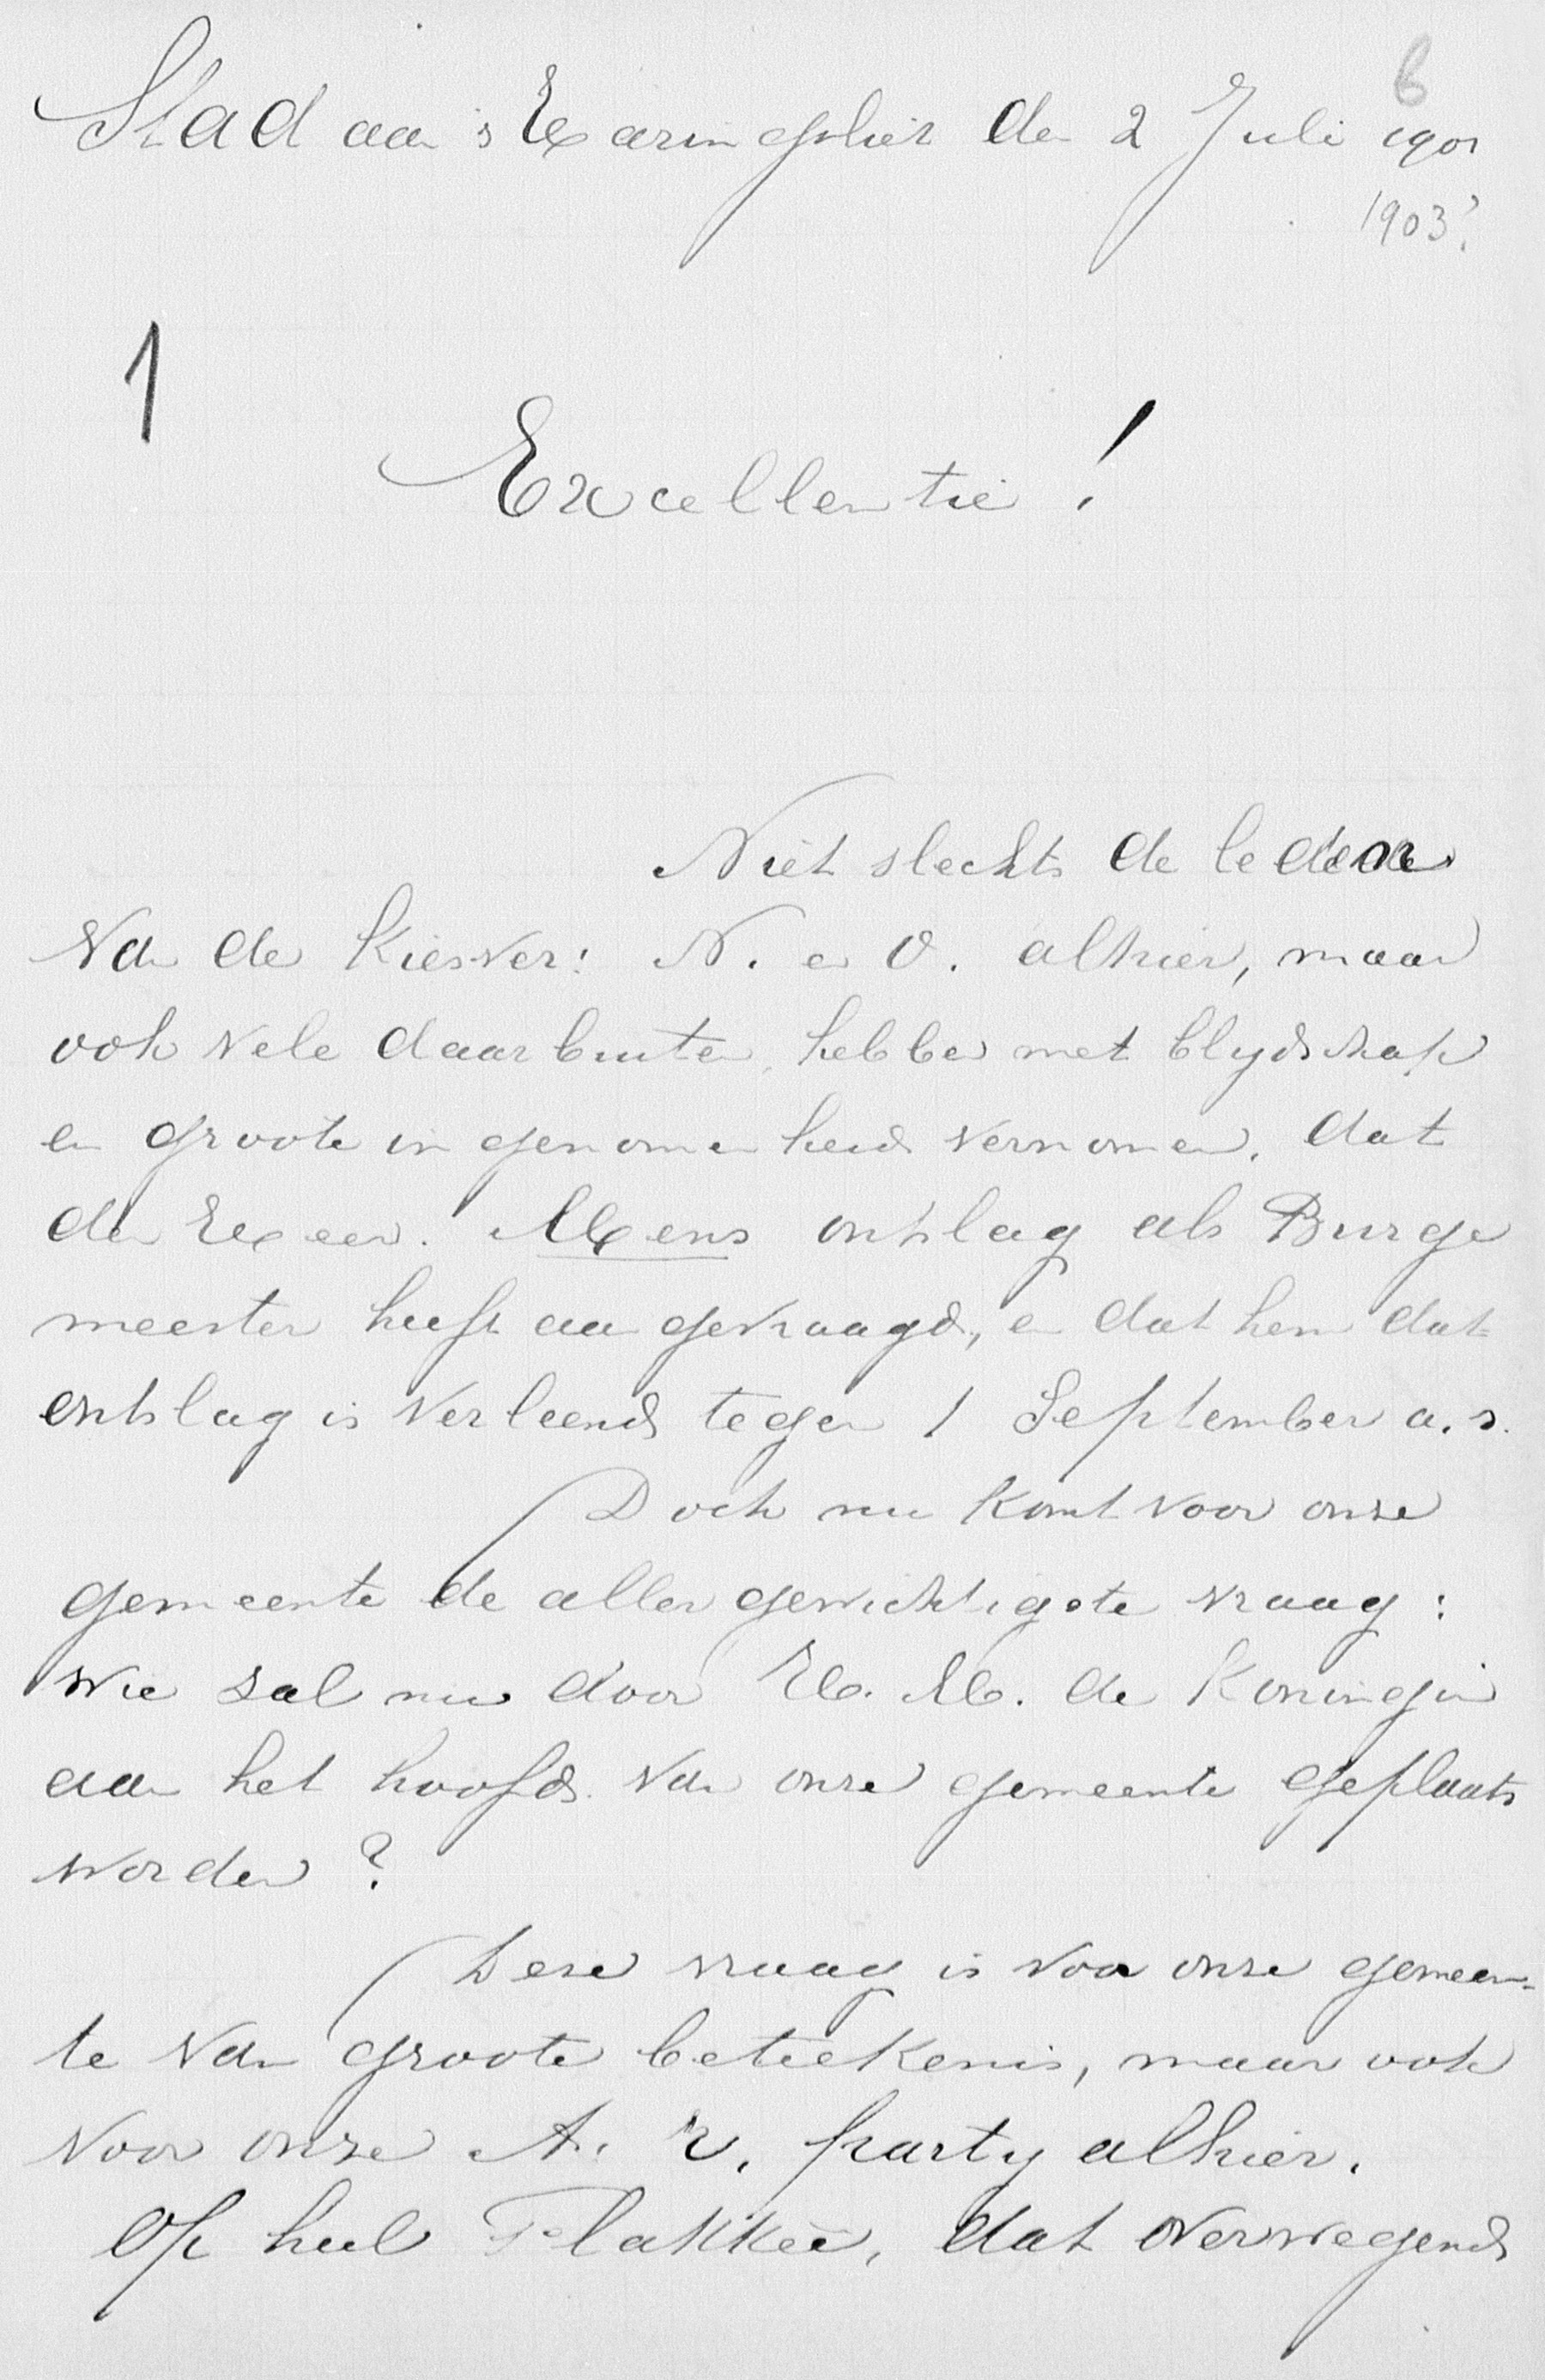 6
Stad aan 's Haringvliet den 2 Juli 1901
1903?
1
Excellentie!
Niet slechts de leden
van de Kiesver: N. en O. alhier, maar
ook vele daarbuiten, hebben met blydschap
en groote ingenomenheid vernomen, dat
den Heer. Mens ontslag als Burge
meester heeft aangevraagd, en dat hem dat
ontslag is verleend tegen 1 September a.s.
Doch nu komt voor onze
gemeente de allergewichtigste vraag:
Wie zal nu door H. M. de Koningin
aan het hoofd van onze gemeente geplaats
worden?
Deze vraag is voor onze gemeen-
te van groote beteekenis, maar ook
voor onze A. R. party alhier.
Op heel Flakkeë, dat overwegend